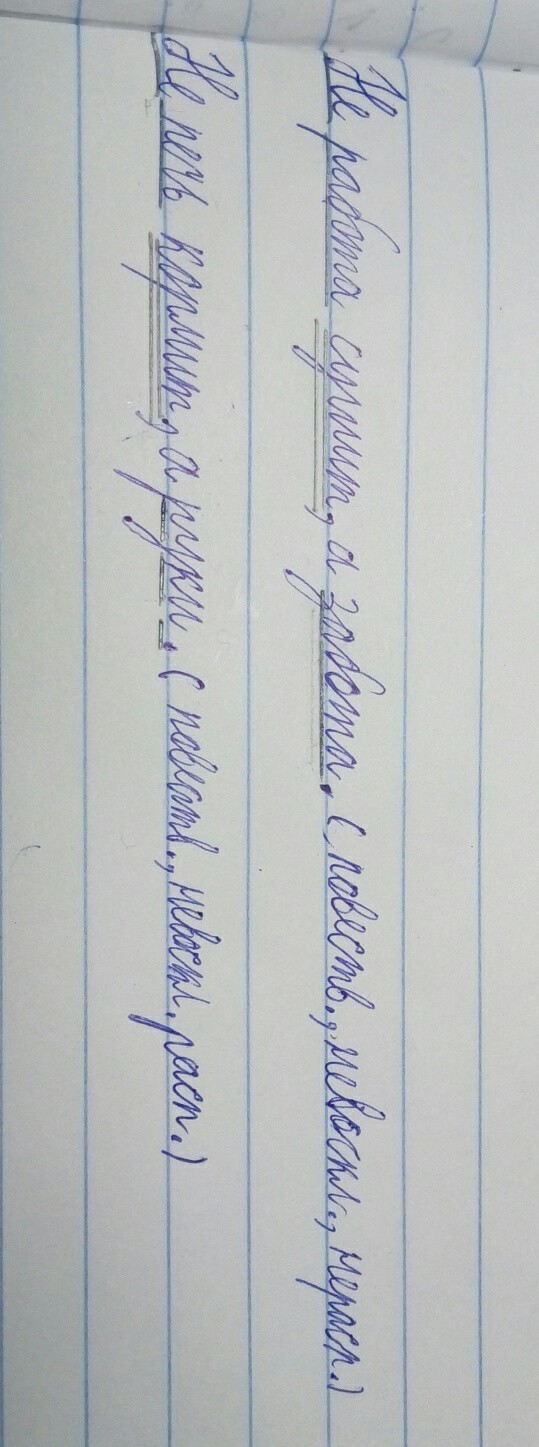 Не работа сушит, а забота. (повеств., невоскл., нерасп.)
Не печь кормит, а руки. (повеств., невоскл. расп.)